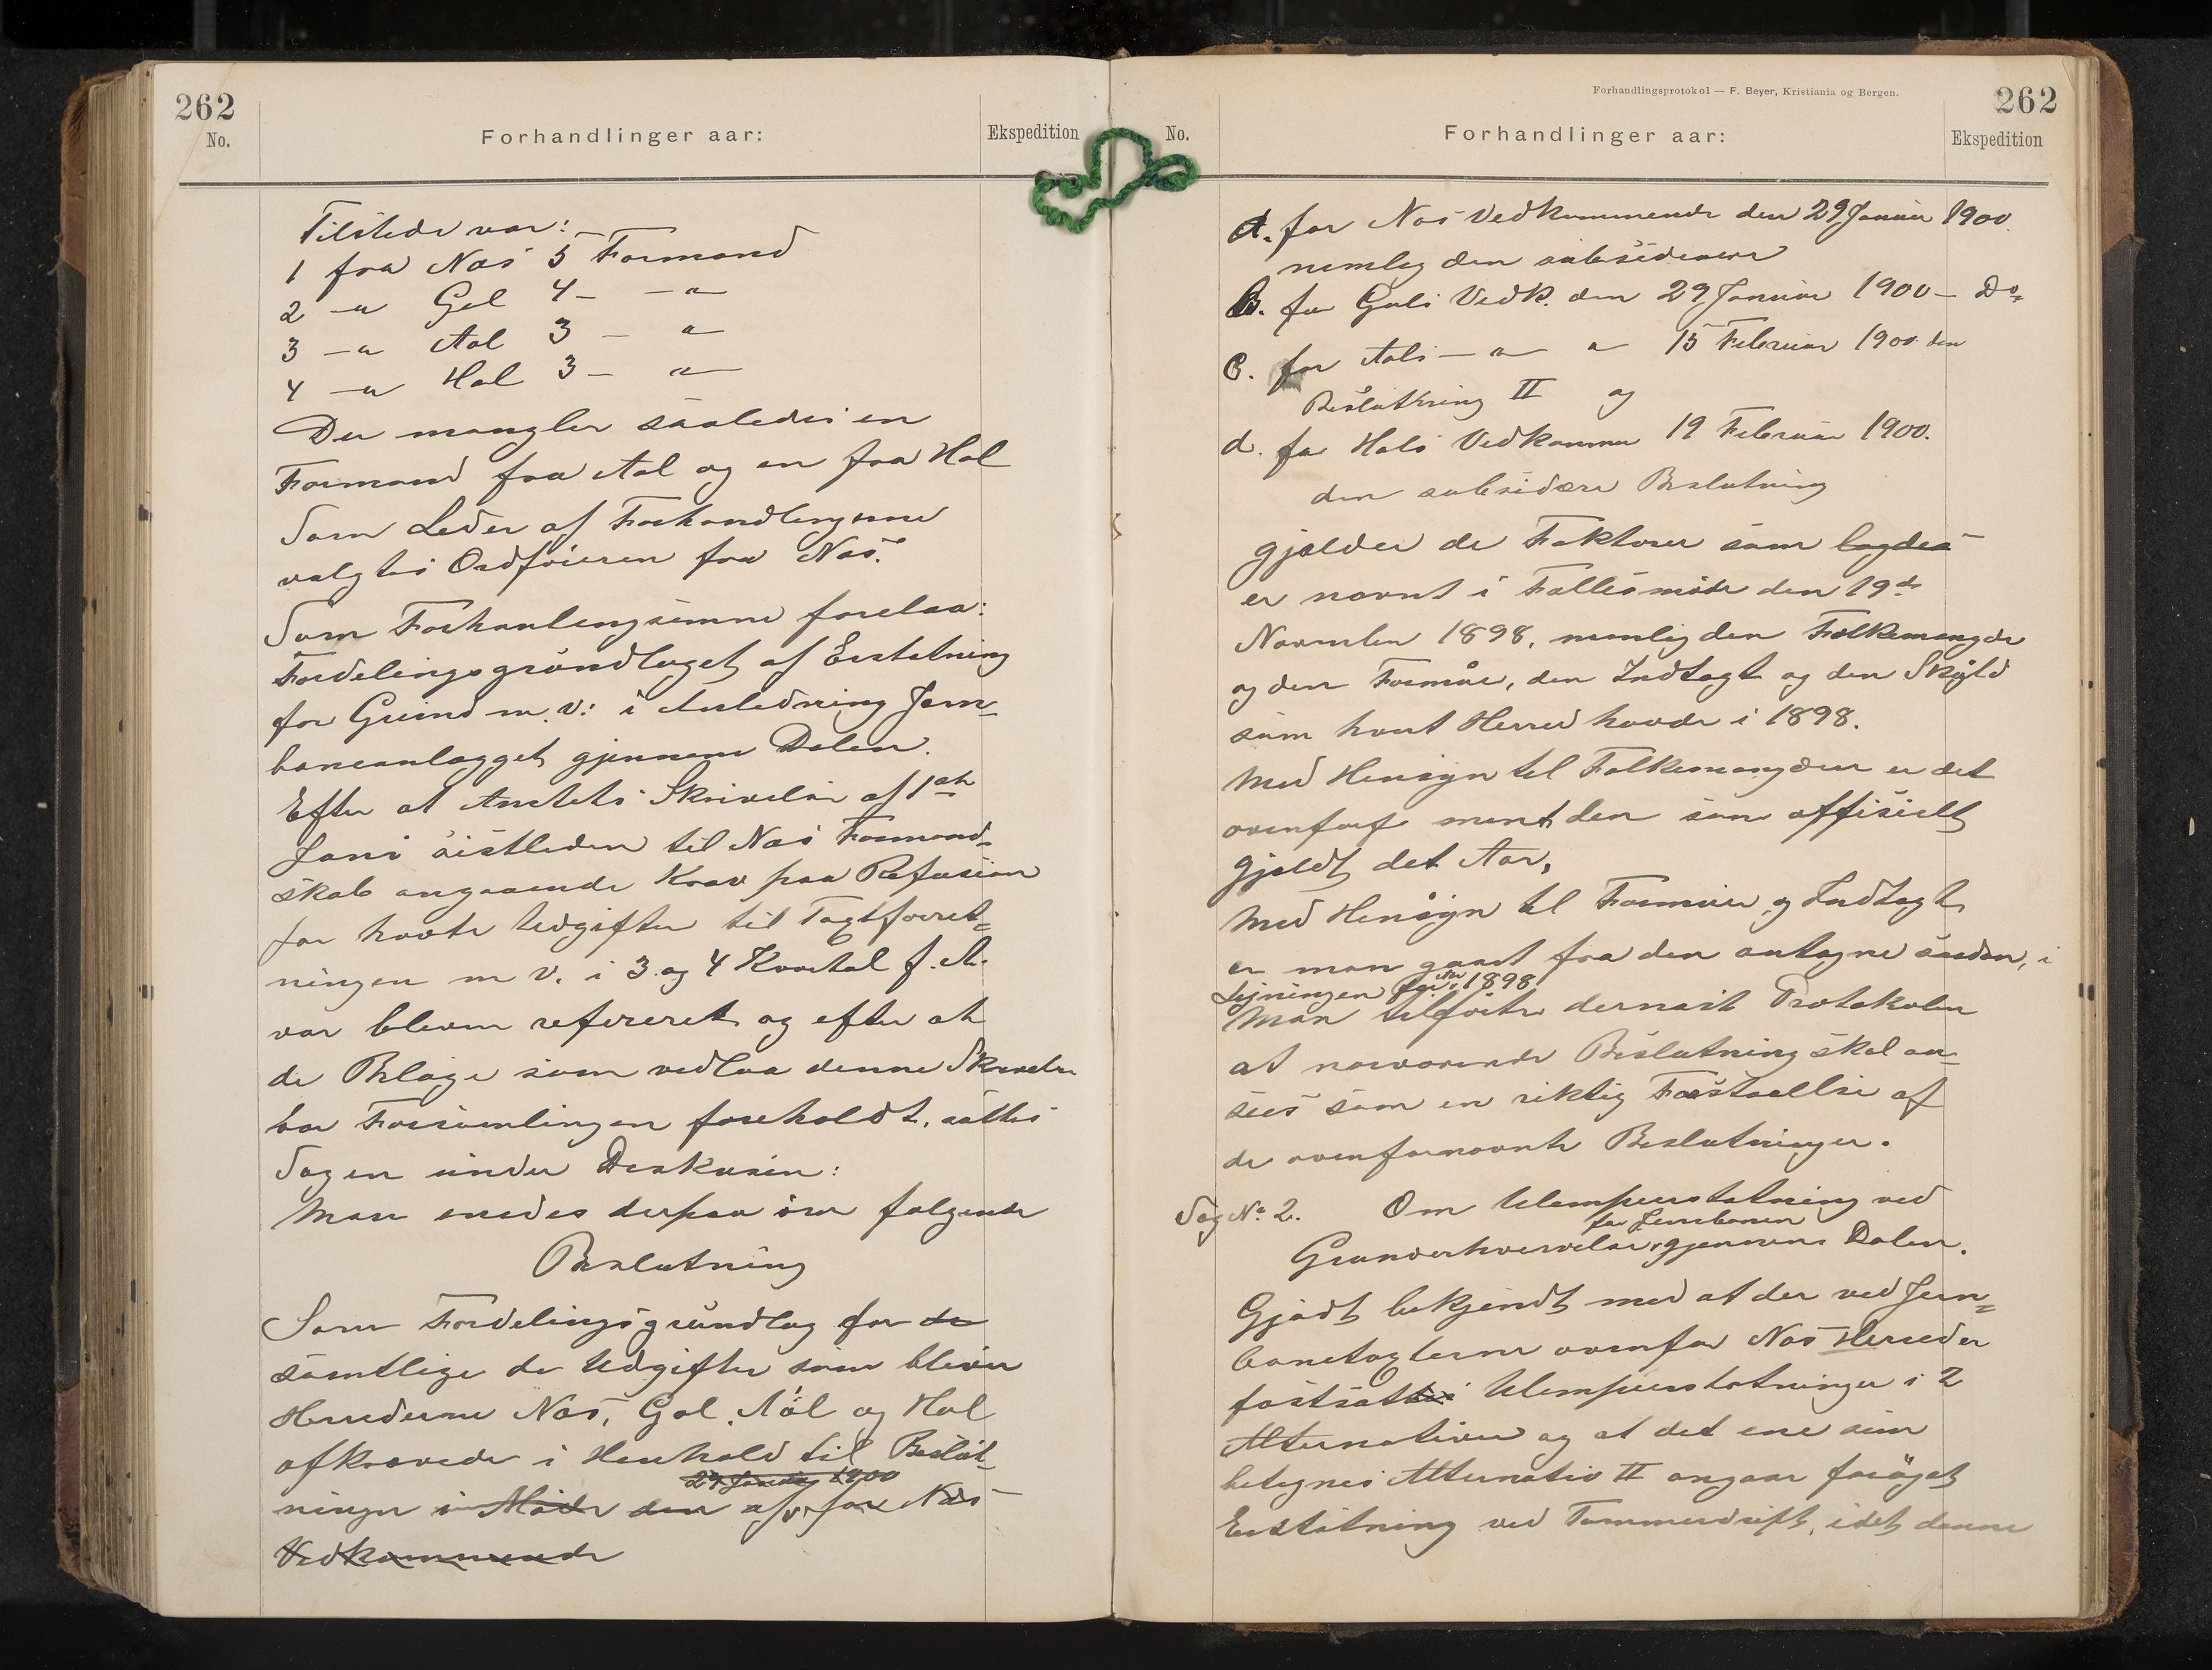 262
No.
Forhandlinger aar:
Ekspedition
Tilstede var:
1 fra Næs 5 Formænd
2 –"– Gol 4 – –"–
3 –"– Aal 3 – "–
4 –"– Hol 3 – "–
Der mangler saaledes en
Formand fra Aal og en fra Hol
Som Leder af Forhandlingerne
valgtes Ordføreren fra Næs.
Som Forhanlingsemne forelaa:
Fordelingsgrundlaget af Erstatning
for Grund m.v: i Anledning Jern-
baneanlægget gjennem Dalen.
Efter at Amtets Skrivelse af 1ste
Juni sistleden til Næs Formand-
skab angaaende Krav paa Refusion
for havte Udgifter til Tagtforret-
ningen m v. i 3 og 4 Kvartal f. A.
var bleven refereret og efter at
de Bilage som vedlaa denne Skrivelse
var Forsamlingen foreholdt, sattes
Sagen under Diskusion:
Man enedes derpaa om følgende
Beslutning
Som Fordelingsgrundlag for de
samtlige de Udgifter som bliver
Herrederne Næs, Gol, Aal og Hol
afkrævede i Henhold til Beslut-
29 Januar 1900
ninger i Møde den af for Næs
Vedkommende
Forhandlingsprotokol — F. Beyer, Kristiania og Bergen.
262
No.
Forhandlinger aar:
Ekspedition
A. for Næs Vedkommende den 29 Januar 1900
nemlig den subsidiære
B. for Gols Vedk. den 29 Januar 1900 – Do
C. for Aals –"– " 15 Februar 1900 den
Beslutning II og
d. for Hols Vedkomme 19 Februar 1900.
den subsidære Beslutning
gjælder de Faktorer som lagdes
er nævnt i Fællesmøde den 19de
November 1898, nemlig den Folkemængde
og den Formue, den Indtægt og den Skyld
som hvert Herred havde i 1898.
Med Hensyn til Folkemængden er det
ovenfor ment den som offisielt
gjaldt det Aar,
Med Hensyn til Formue og Indtægt
er man gaaet fra den antagne saadan, i
Ligningen for Aar 1898
Man tilførte dernæst Protokolen
at nærværende Beslutning skal an-
sees som en riktig Forstaaelse af
de ovenfornævnte Beslutninger.
Sag No 2. Om Ulempeerstatning ved
for Jernbanen
Grunderhvervelse gjennem Dalen.
Gjødt bekjendt med at der ved Jern-
banetagterne ovenfor Næs Herreder
fastsattes Ulempeerstatninger i 2
Alternativer og at det ene som
betegnes Alternativ II angaar forøget
Erstatning ved Tømmerdrift, idet denne